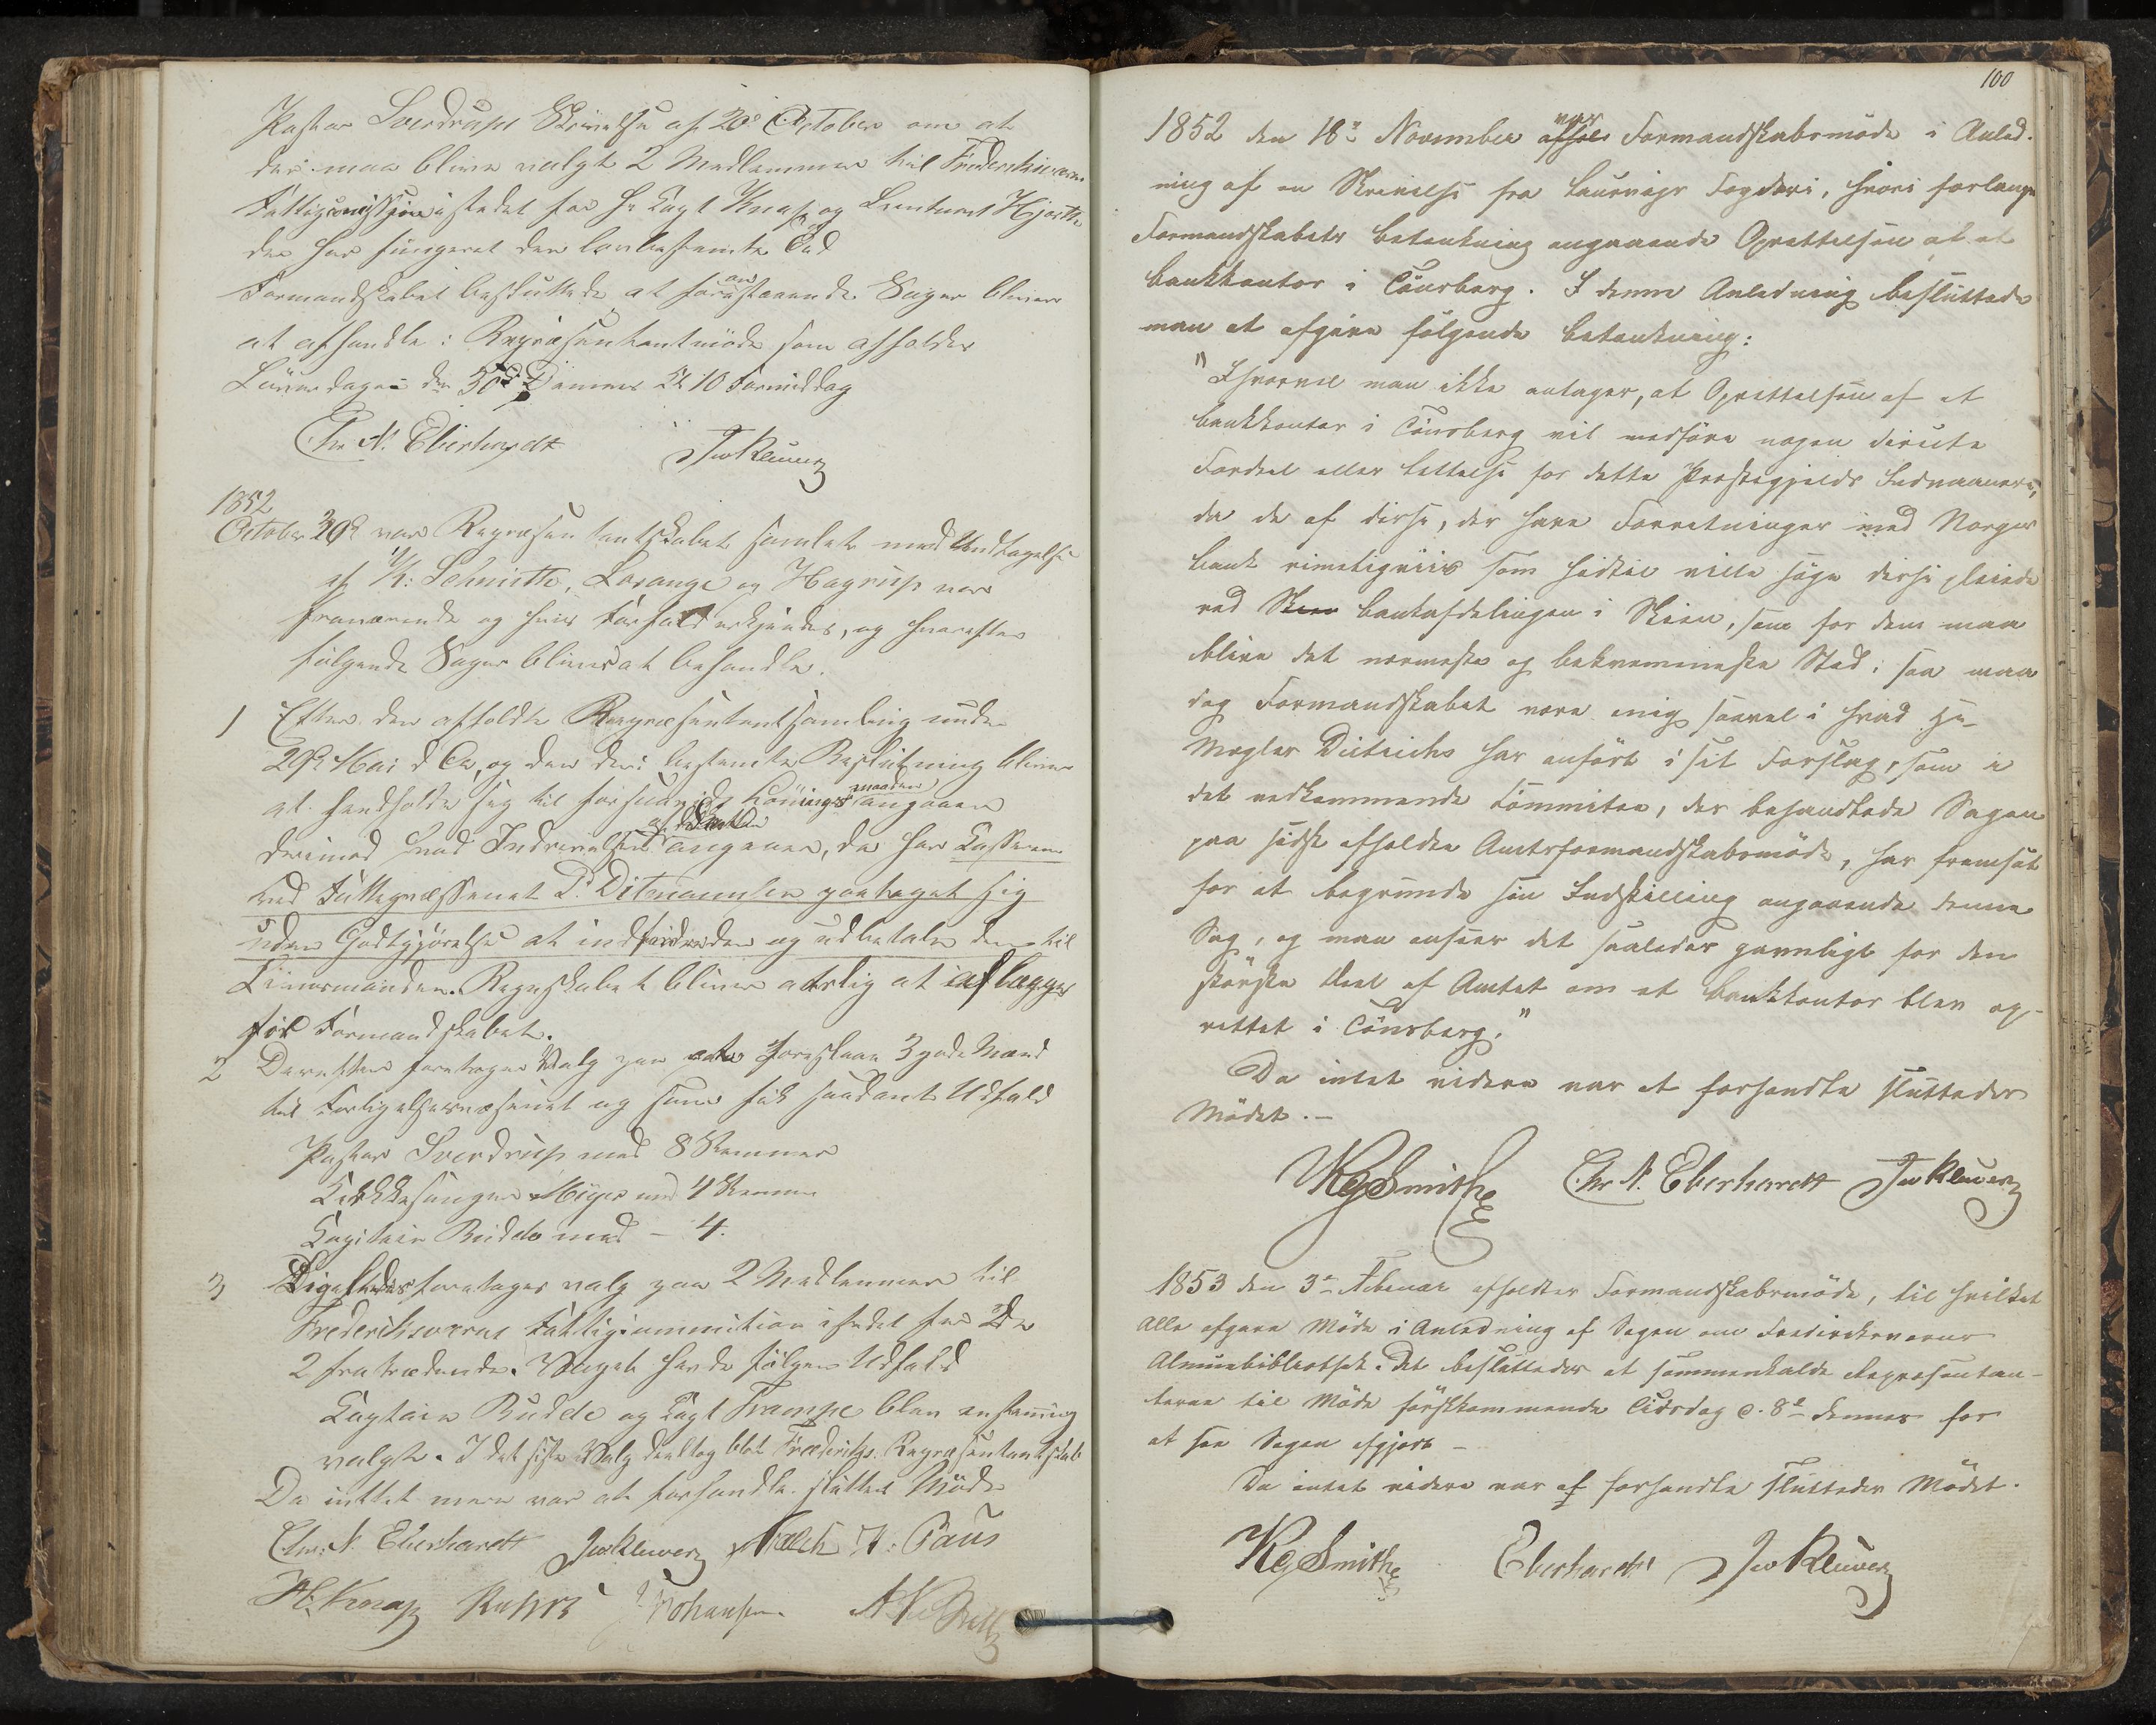 Pastor Sverdrups Skrivelse af 20de October om at
der maa blive valgt 2 Medlemmer til Frederiksværns
Fattigcommission istedet for Hr Capt Knap og Lieutnant Hjorth
der har fungeret den lovbestemte Tid
Formandskabet besluttede at foranstaaende Sager bliver
at afhandle i Repræsentantmøde som afholdes
Løverdagen den 30te Dennes Kl 10 Formiddag
Chr N. Eberhardt Jac Kluwer
1852
October 30te var Repræsentantskabet samlet med Undtagelse
af Hr: Schmith, Larange og Hagrup var
fraværende og hvis Forfald erkjendes, og hvorefter
følgende Sager bliver at behandle.
1 Efter den afholdte Repræsentantsamling under
29de Mai d Ar, og den deri bestemte Beslutning bliver
at henholde sig til Lønings maaden angaaer
derimod hvad Inddrivelsen af Skatten angaaer, da har Casserer
ved Fattigvæssenet P. Ditmannsen paataget sig
uden Godtgjørelse at indfordre den og udbetale den til
Regnskabet bliver aarlig at aflægges
for Formandskabet.
2 Derefter foretoges Valg paa at foreslaae 3 gode Mænd
til Forligelsesvæsenet og som fik saadant Udfald
Pastor Sverdrup med 8 Stemmer
Kirkesanger Meyer med 4 Stemmer
Capitain Budde med - 4.
3 Ligeledes foretoges valg paa 2 Medlemmer til
Frederiksværns Fattigcommition istedet for De
2 fratrædende. Valget havde følgende Udfald
Captain Budde og Capt Trampe blev enstemmig
valgt. I det siste Valg deeltog blot Frederiksv. Repræsentantskab
Da inttet mere var at forhandle sluttes Møde
Chr: N. Eberhardt Jac Kluwer Falch N: Paus
H. Knap J Johansen
100
1852 den 18de November var afholdt Formandskabsmøde i Anled-
ning af en Skrivelse fra Laurvigs Fogderi, hvori forlanges
Formandskabets betænkning angaaende Oprettelsen af et
bankkontor i Tønsberg. I denne Anledning besluttede
man at afgive følgende betænkning:
"Ihvorvel man ikke antager, at Oprettelsen af et
bankkontor i Tønsberg vil medføre nogen directe
Fordeel eller lettelse for dette Præstegjelds Indvaanere,
da de af disse, der have Forretninger med Norges
bank rimeligviis som hidtil ville søge disse pleiede
ved Skien bankafdelingen i Skien, som for dem maa
blive det nærmeste og bekvemmeste Sted; saa maa
dog Formandskabet være enig saavel i hvad Hr-
Mægler Dietrichs har anført i sit Forslag, som i
det vedkommende Committee, der behandlede Sagen
paa sidst afholdte Amtsformandskabsmøde, har fremsat
for at begrunde sin Indstilling angaaende denne
Sag, og man anseer det saaledes gavnligt for den
største Deel af Amtet om et bankkontor blev op-
rettet i Tønsberg."
Da intet videre var at forhandle sluttedes
Mødet.-
Kg Smith Chr N. Eberhardt Jac Kluwer
1853 den 3de Februar afholdtes Formandskabsmøde, til hvilket
Alle afgave Møde i Anledning af Sagen om Frederiksværns
Almuebibliothek. Det besluttedes at sammenkalde Repræsentan-
terne til Møde førstkommende Tirsdag d. 8de dennes for
at faa Sagen afgjort -
Da intet videre var at forhandle sluttedes Mødet.
Kg Smith Eberhardt Jac Kluwer